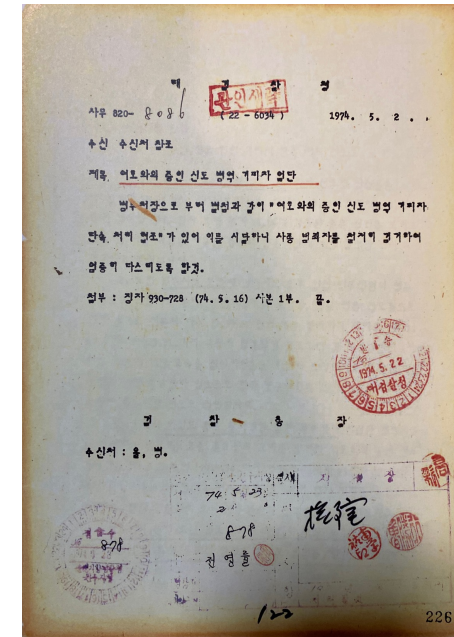 대 검 찰 청
관인생략
사무 820-8086 (22-6034) 1974. 5. 2
수신 수신처 참조
제목 여호와의 증인 신도 병역 기피자 엄단
병무청장으로 부터 별첨과 같이 "여호와의 증인 신도 병역 기피자
단속 처리 협조"가 있어 이를 시달하니 사종 범죄자를 철저히 검거하여
엄중히 다스리도록 할것.
첨부 : 징자 930-728 (74.5.16) 사본 1부. 끝.
1974.5.22
대검찰청
검 찰 총 장
수신처 : 을, 병.
74 5 23
878
878
122
226